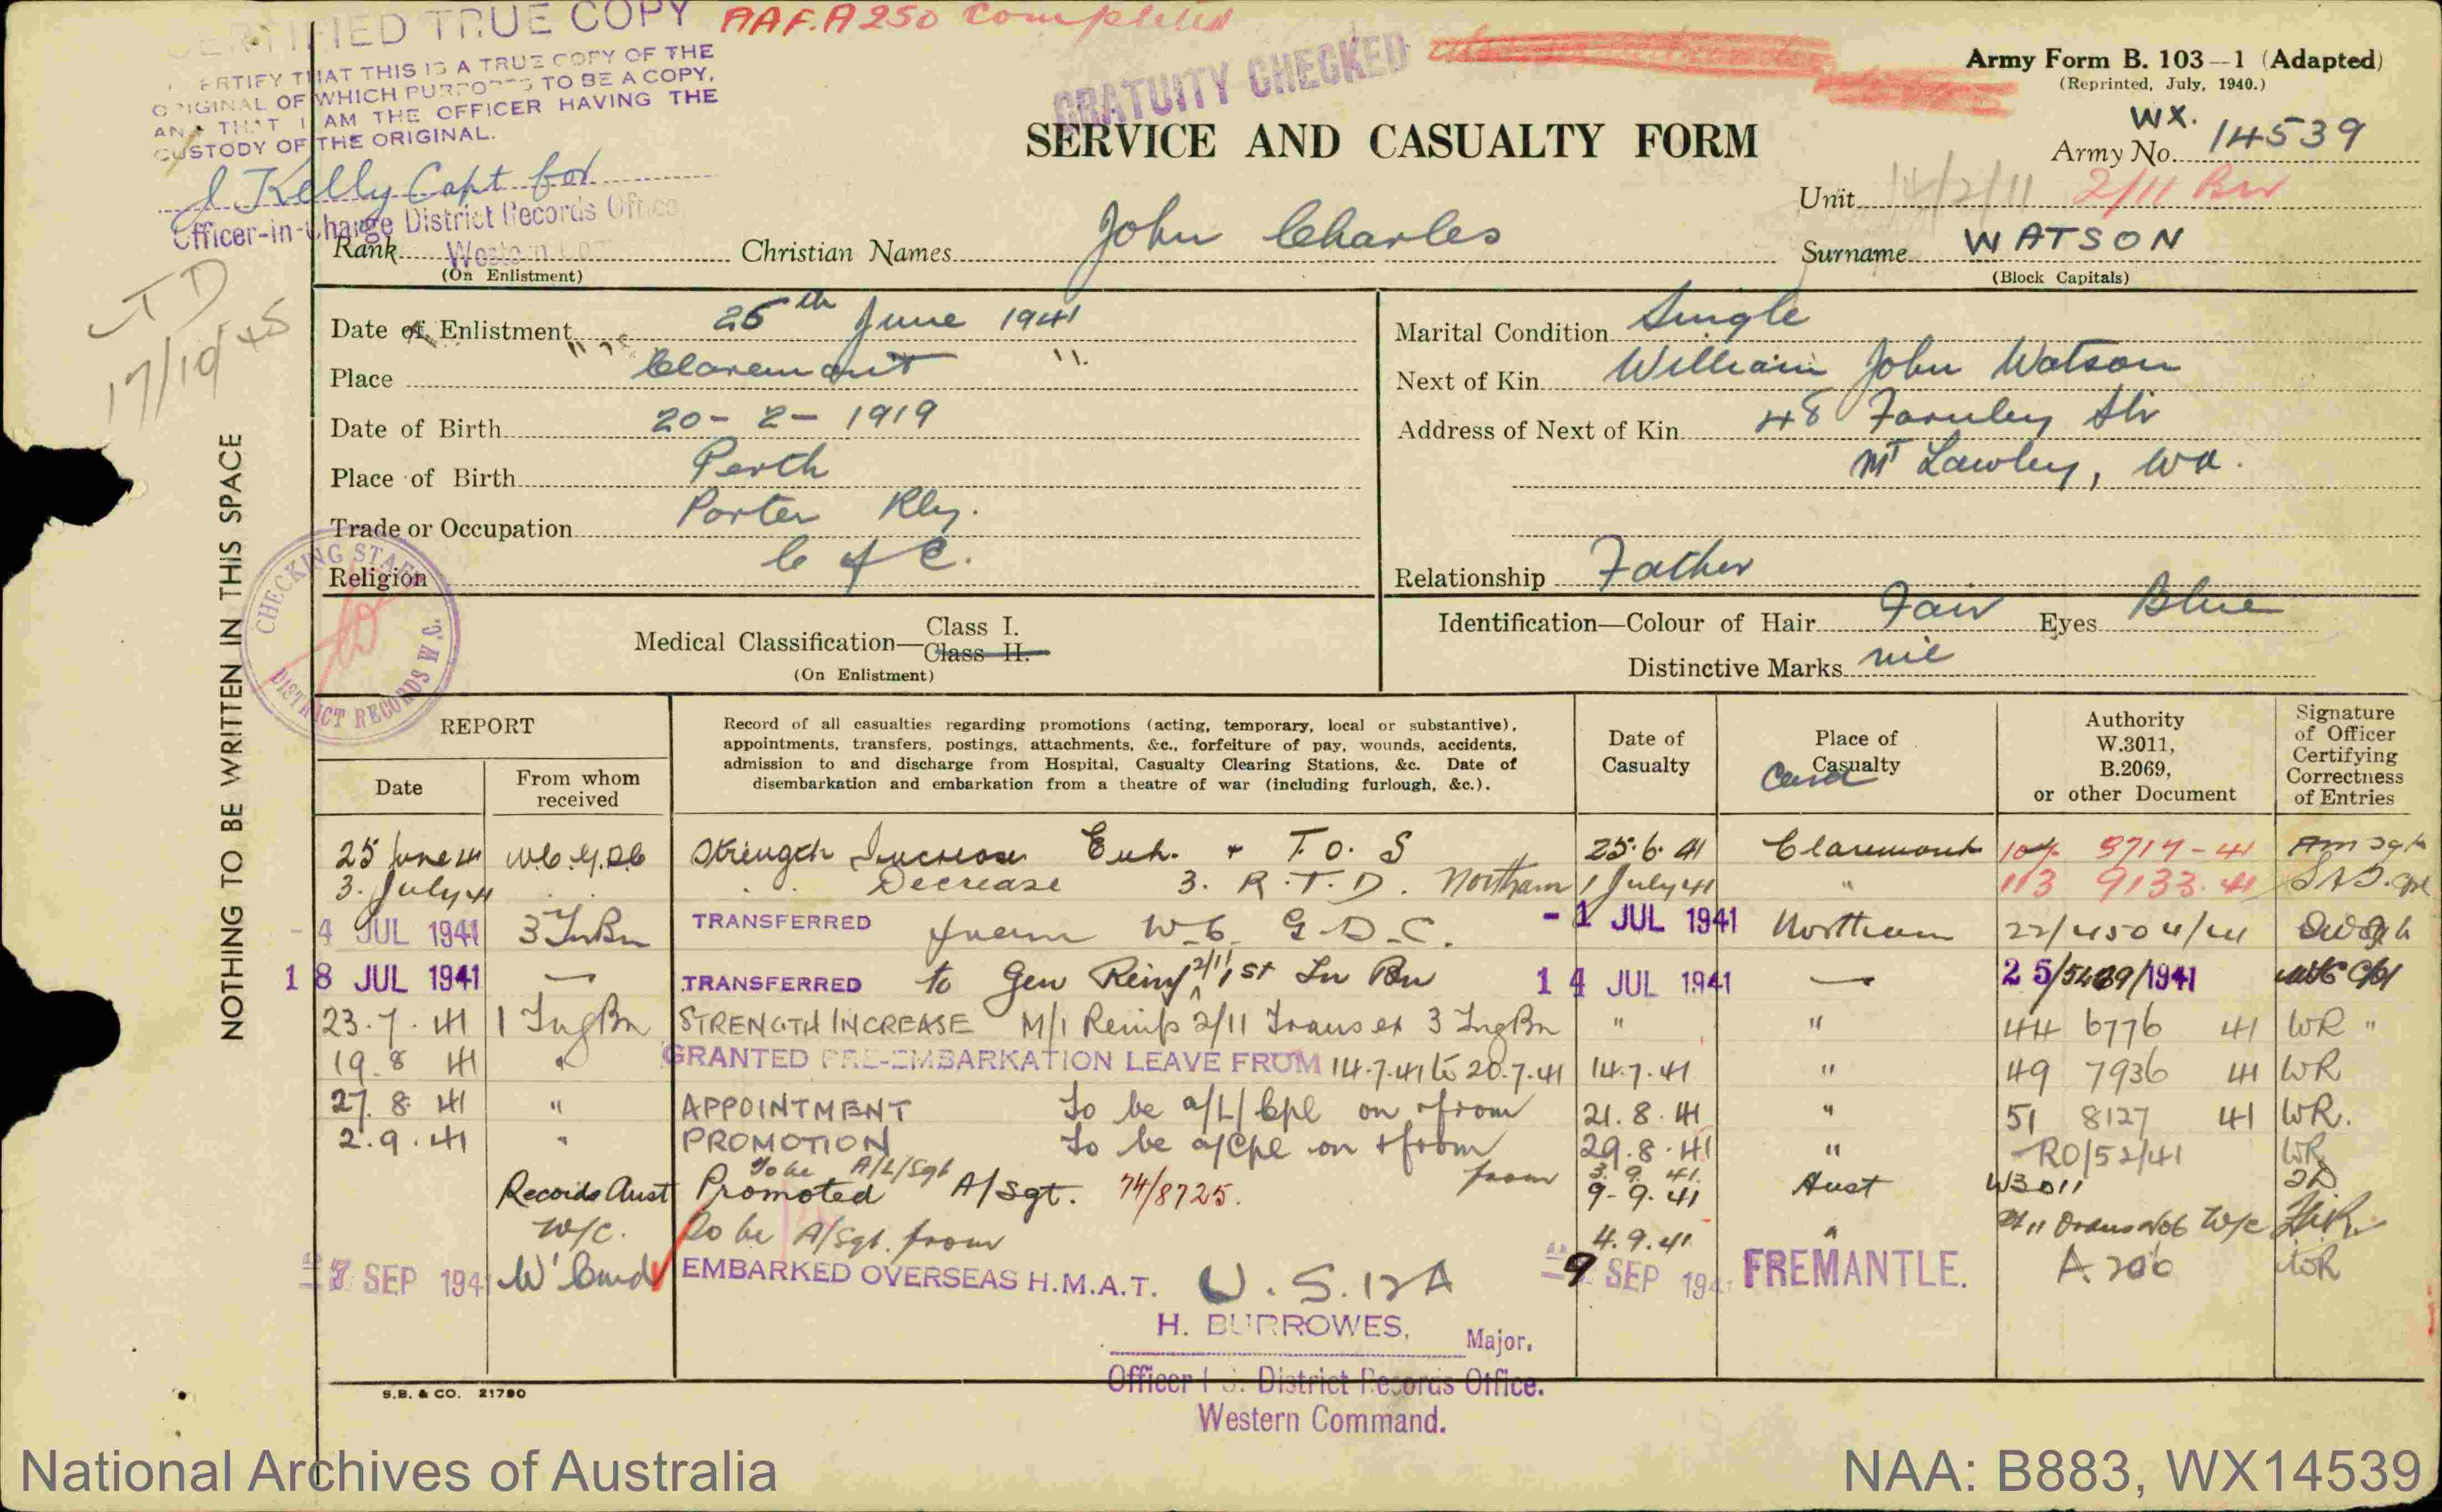 CERTIFIED TRUE COPY
AAF.A250 Completed
I CERTIFY THAT THIS IS A TRUE COPY OF THE
ORIGINAL OF WHICH PURPORTS TO BE A COPY,
AND THAT I AM THE OFFICER HAVING THE
CUSTODY OF THE ORIGINAL.
J Kelly Capt for
Officer-in-Charge District Records Office
GRATUITY CHECKED
Army Form B. 103—1 (Adapted)
(Reprinted, July, 1940.)
SERVICE AND CASUALTY FORM
Army No. WX. 14539
Unit 2/11 Bn
Rank
(On Enlistment)
Christian Names John Charles
Surname WATSON
(Block Capitals)
JD
17/10/45
Date of Enlistment 25th June 1941
Place Claremont
Date of Birth 20-2-1919
Place of Birth Perth
Trade or Occupation Porter Rly.
Religion C of E.
Marital Condition Single
Next of Kin William John Watson
Address of Next of Kin 48 Farnley Str
Mt Lawley, WA.
Relationship Father
Medical Classification— Class I.
Class II.
(On Enlistment)
Identification—Colour of Hair Fair Eyes Blue
Distinctive Marks nil
CHECKING STAFF
DISTRICT RECORDS W.C.
NOTHING TO BE WRITTEN IN THIS SPACE
REPORT
Date
From whom received
Record of all casualties regarding promotions (acting, temporary, local or substantive),
appointments, transfers, postings, attachments, &c., forfeiture of pay, wounds, accidents,
admission to and discharge from Hospital, Casualty Clearing Stations, &c. Date of
disembarkation and embarkation from a theatre of war (including furlough, &c.).
Date of Casualty
Place of Casualty
Authority W.3011, B.2069, or other Document
Signature of Officer Certifying Correctness of Entries
25 June 41 W.C.G.D.C Strength Increase Enl. + T.O.S 25.6.41 Claremont 107 8717-41
3. July 41 " " Decrease 3. R.T.D. Northam 1 July 41 " 113 9133.41
- 4 JUL 1941 3 Tn Bn TRANSFERRED from W.C. G.D.C. - 1 JUL 1941 Northam 22/4504/41
18 JUL 1941 — TRANSFERRED to Gen Reinf 2/11 1st Tn Bn 14 JUL 1941 — 25/5489/1941
23.7.41 1 Tng Bn STRENGTH INCREASE M/I Reinfs 2/11 Trans ex 3 Tng Bn " " 44 6776 41 WR "
19.8 41 " GRANTED PRE-EMBARKATION LEAVE FROM 14.7.41 to 20.7.41 14.7.41 " 49 7936 41 WR
27.8.41 " APPOINTMENT To be a/L/Cpl on & from 21.8.41 " 51 8127 41 WR.
2.9.41 " PROMOTION To be a/Cpl on & from 29.8.41 " RO/52/41 WR
To be A/L/Sgt from 3.9.41.
Records Aust Promoted A/Sgt. 74/8725. 9-9-41 Aust W3011
W/C. To be A/Sgt. from 4.9.41 "
SEP 194 EMBARKED OVERSEAS H.M.A.T. U.S.12A 9 SEP 194 FREMANTLE. A206 WR
H. BURROWES, Major,
Officer I C. District Records Office.
Western Command.
S.B. & CO. 21790
National Archives of Australia
NAA: B883, WX14539